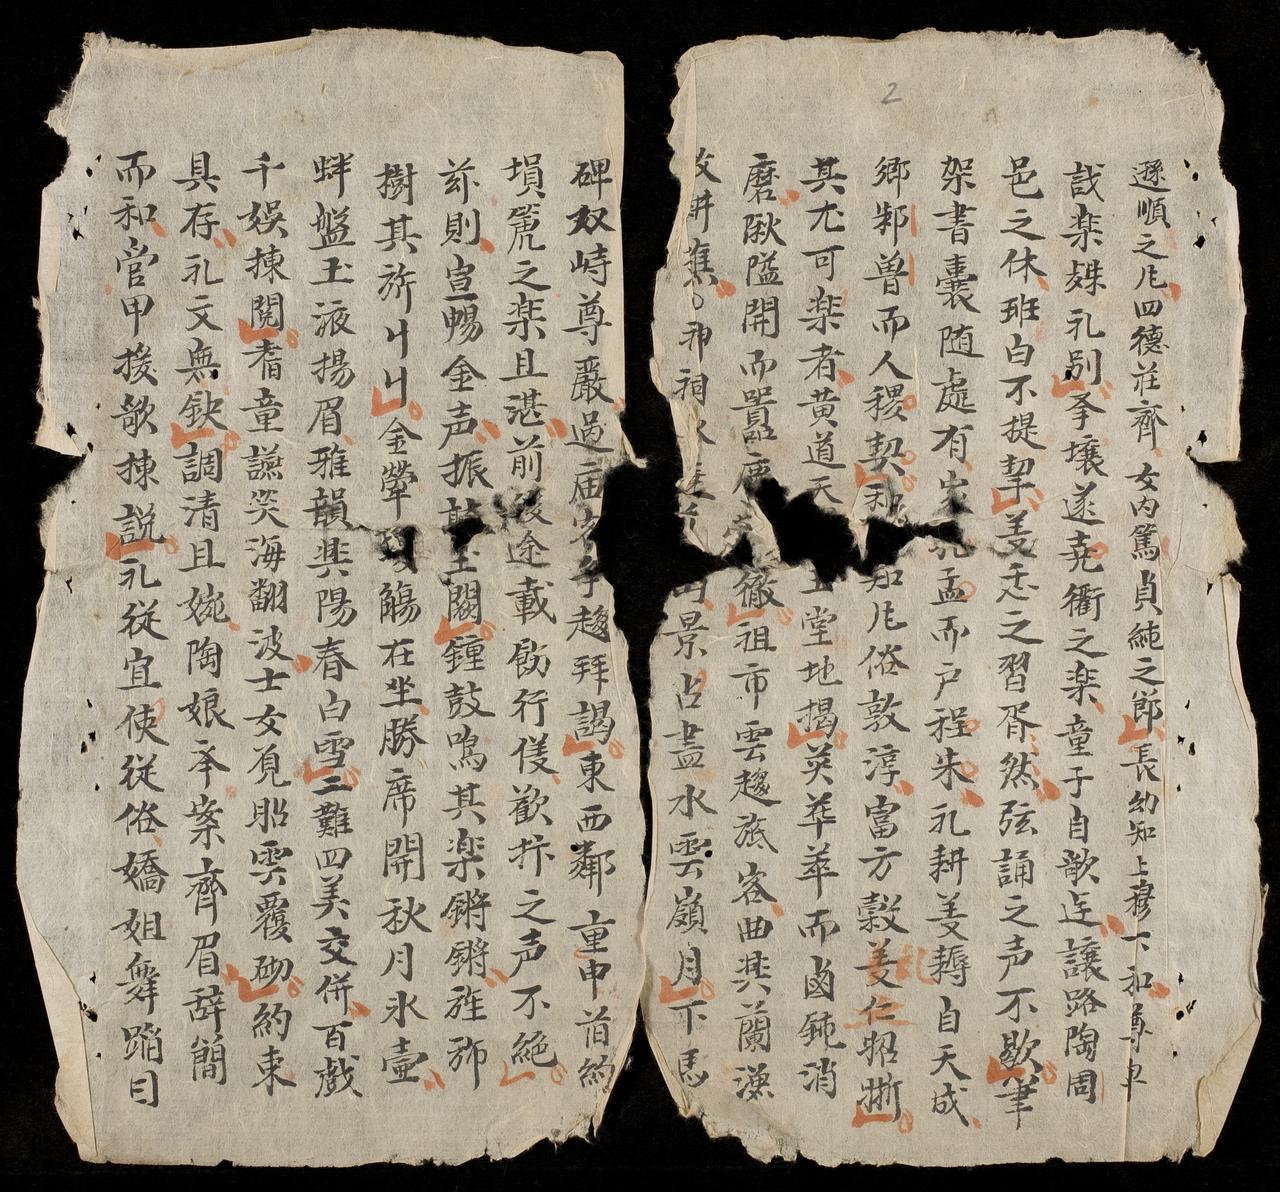 2
遜順之𠃔四德莊齊女内篤貞純之節長幼知上穆下和尊卑
戠楽殊礼别夆壤遂尭衢之楽童子自歌迋讓路陶周
邑之休班白不提挈羙恶之習胥然弦誦之声不歇筆
架書囊随處有孟而戸程朱礼耕羙耨自天成
鄉鄒曽而人稷契和知𠃔俗敦淳富方穀羙仁招撕
其尤可楽者黄道天堂地揭英華萃而鹵鈍消
磨陬隘開而囂徹祖市雲趨旅客曲其蘭濂
耕蕉祠景占盡水雲嶺月下
碑奴峙尊嚴過庙趨拜謁東西鄰重申首約
塤箎之楽且湛前後途載飭行僕歡抃之声不絶
茲則宣暢金声振玉闕鍾鼓鳴其楽鏘鏘旌斾
樹其旂斗斗金觴在坐勝席開秋月氷壷
蚌盤玉液揚眉雅韻與陽春白雪二難四美交併百戲
千娱揀閲耆童讌笑海翻波士女覓貽雲覆砌約束
具存礼文無缺調清且婉陶娘夲案齊眉辞簡
而和官甲援歌揀説礼從宜使從俗嬌姐舞蹈目